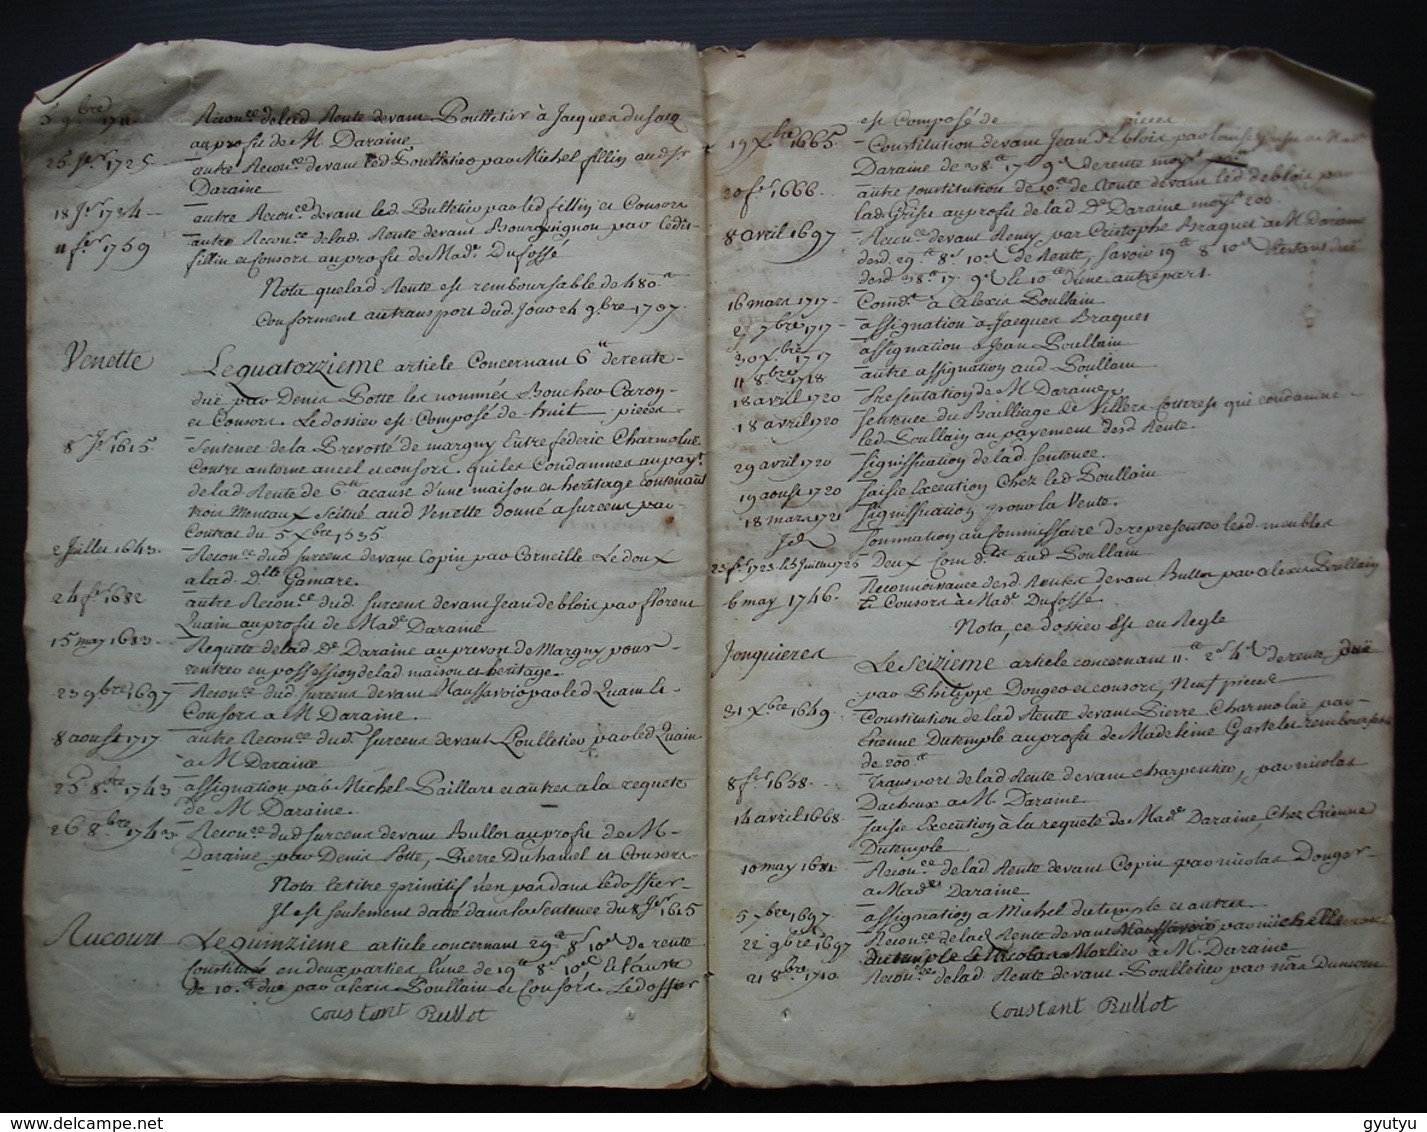 5 9bre 17 Reconce de lad Rente devant Poulletier à Jacques du Jacq
au profit de M. Daraine
25 Jer 1725 autre Reconce devant led Poulletier par Michel fillin aud Sr
Daraine
18 Jer 1734 autre Reconce devant led Poulletier par led fillin et Consors
11 fer 1759 autre Reconce de lad. Rente devant Bourguignon par led
fillin et Consors au profit de Made Dufossé
Nota que lad Rente est remboursable de 480tt
Conforment au transport dud. Jour 24 9bre 1707.
Venette Le quatorzzieme article Concernant 6tt de rente
duë par Denis Potte les nommés Boucher Caron
et Consors. Le dossier est Composé de huit pieces
8 Jer 1615 Sentence de la Prevosté de margny Entre féderic Charmolue
Contre antoine ancel et consors. qui les Condamnes au payt
de lad Rente de 6tt acause d'une maison et héritage contenant
trois Mentaux Scitué aud Venette donné a surcens par
Contrat du 5 Xbre 1535
2 Juillet 1643. Reconce dud Surcens devant Copin par Corneille Le doux
a lad. Dlle Gomare.
24 fer 1682 autre Reconce dud. Surcens devant Jean de blois par florent
Quain au profit de Made Daraine
15 may 1683. Requette de lad. De Daraine au prevost de Margny pour
rentrer en possession de lad maison et héritage.
23 9bre 1697 Reconce dud Surcens devant Haussavoir par led Quain &
Consors a M. Daraine.
8 aoust 1717 autre Reconce dud. Surcens devant Poulletier par led Quain
à M Daraine
25 8bre 1743 assignation par Michel Paillart et autres a la requete
de M. Daraine.
26 8bre 1743 Reconce dud Surcens devant Bullot au profit de M.
Daraine par Denis Potte, Pierre Duhamel et Consors
Nota le titre primitif n'en pas dans le dossier
Il est seulement datté dans la sentence du 8 Jer 1615
Rucourt Le quinzieme article concernant 29tt 8s 10d de rente
Constitués en deux parties l'une de 19tt 8s 10d & l'autre
de 10tt due par alexis Poullain et Consors. Le dossier
Constant Bullot
est Composé de pieces
19 Xbre 1665. Constitution devant Jean de blois par Louise Grise a Made
Daraine de 38tt 17s 9d de rente moyt
20 fer 1666. autre Constitution de 10tt de Rente devant led de blois par
lad. Grise au profit de lad De Daraine moyt 200
8 avril 1697 Reconce devant Remy par Cristophe Braques a M Daraine
desd. 29tt 8s 10d de Rente, savoir 19tt 8s 10d Restans des
desd 38tt 17s 9d & 10tt d'une autre part.
16 mars 1717 Comdt à Alexis Poullain
2 7bre 1717 assignation à Jacques Braques
30 Xbre 1717 assignation a Jean Poullain
11 8bre 1718 autre assignation aud Poullain
18 avril 1720 Presentation de M Daraine
18 avril 1720 Sentence du Bailliage de Villers Cotterest qui condamne
led Poullain au payement desd Rente.
29 avril 1720 Signiffication de lad sentence.
19 aoust 1720 Saisie Execution Chez led Poullain
18 mars 1721 Signiffication pour la Vente.
Id Sommation au Commissaire de representer lesd meubles
23 fer 1723 & 5 Juillet 1726 Deux Comdts aud Poullain
6 may 1746. Reconnoissance desd Rentes devant Bullot par alexis Poullain
& Consors à Made Dufossé
Nota, ce dossier est en Regle
Jonquieres Le seizieme article concernant 11tt 2s 4d de rente duë
par Philippe Donger et consors, Neuf pieces
31 Xbre 1649 Constitution de lad Rente devant Pierre Charmolüe par
Etienne Dutemple au profit de Madeleine Gastelet remboursable
de 200tt
8 fer 1658 Transport de lad Rente devant Charpentier, par nicolas
Dacheux a M. Daraine.
14 avril 1668 Saisie Execution à la requete de Made Daraine, Chez Etienne
Dutemple
10 may 1681 Reconce de lad Rente devant Copin par nicolas Donger
a Made Daraine
5 7bre 1697. assignation a Michel Dutemple et autres
22 9bre 1697 Reconce de lad Rente devant Haussavoir par
dutemple & Nicolas Morlier à M. Daraine
21 8bre 1710 Reconce de lad Rente devant Poulletier par nas
Constant Bullot
delcampe.net
gyutyu